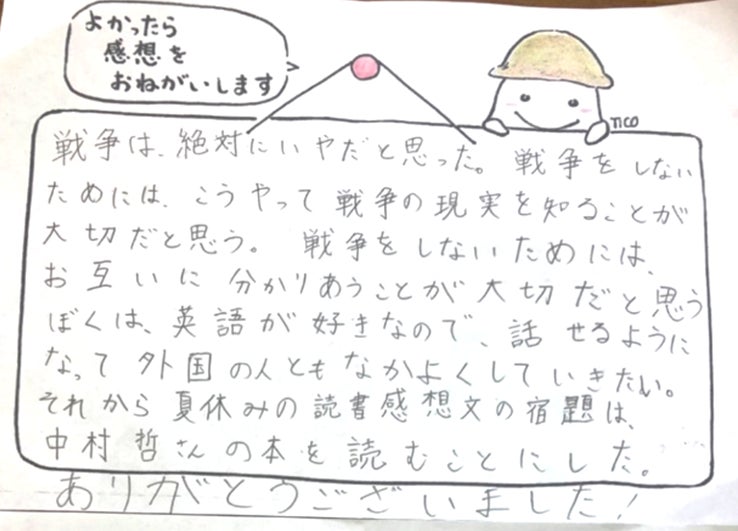 よかったら
感想を
おねがいします
nco
戦争は、絶対にいやだと思った。戦争をしない
ためには、こうやって戦争の現実を知ることが
大切だと思う。戦争をしないためには、
お互いに分かりあうことが大切だと思う
ぼくは、英語が好きなので、話せるように
なって外国の人ともなかよくしていきたい。
それから夏休みの読書感想文の宿題は、
中村哲さんの本を読むことにした。
ありがとうございました!